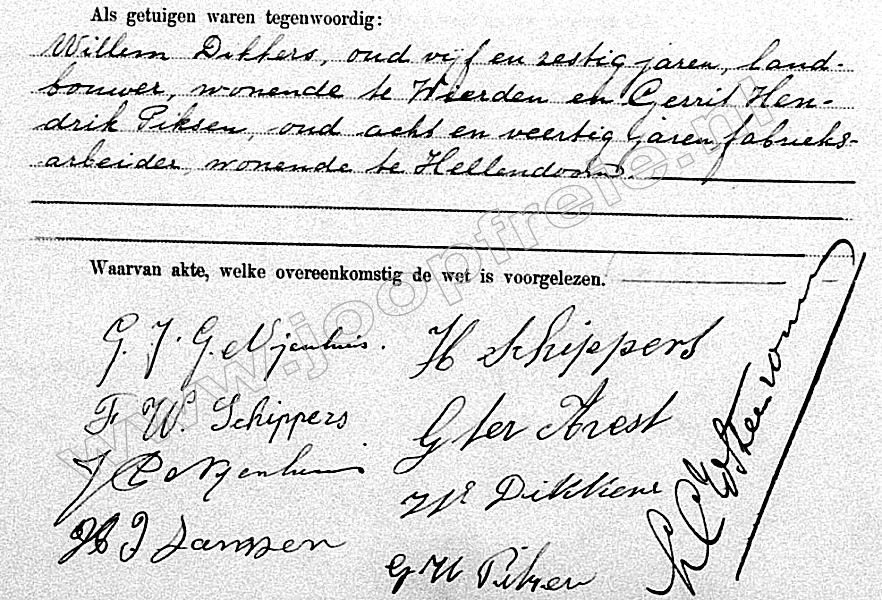 Als getuigen waren tegenwoordig:
Willem Dikkers, oud vijf en zestig jaren, land-
bouwer, wonende te Wierden en Gerrit Hen-
drik Piksen, oud acht en veertig jaren, fabrieks-
arbeider, wonende te Hellendoorn.
Waarvan akte, welke overeenkomstig de wet is voorgelezen.
G. J. G. Nijenhuis.
H Schippers
F W. Schippers
G ter Avest
J Nijenhuis
Dikkers
H J Jansen
G H Piksen
www.joopfreie.nl